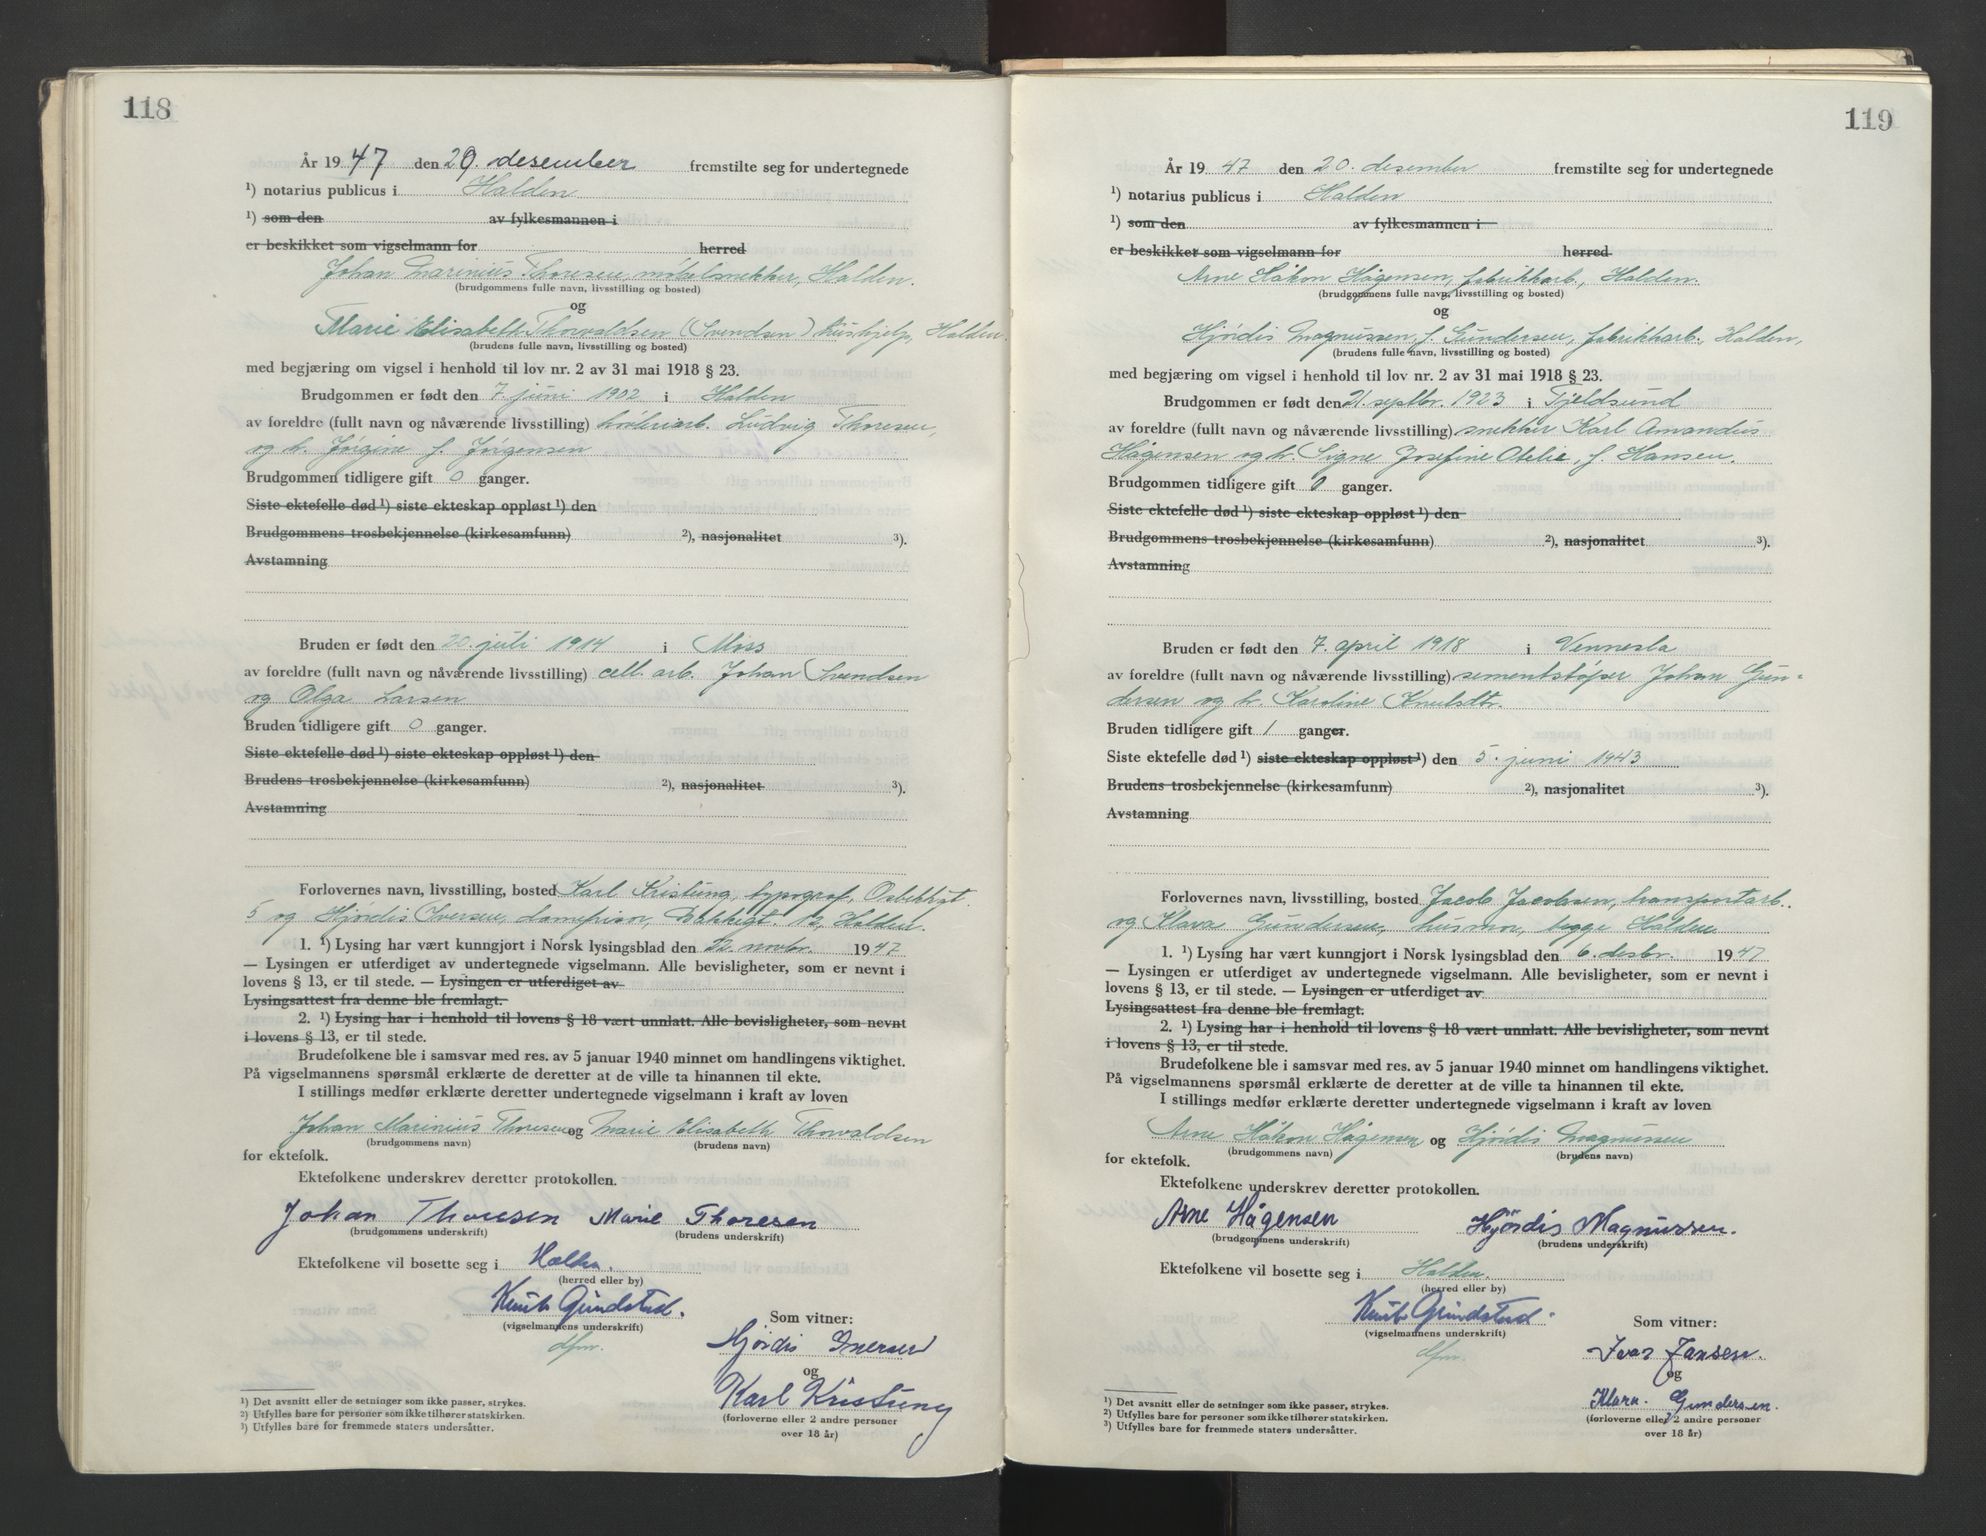 118
År 1947 den 29. desember fremstilte seg for undertegnede
¹) notarius publicus i Halden
¹) som den av fylkesmannen i
er beskikket som vigselmann for herred
Johan Marinius Thoresen, møbelsnekker, Halden.
(brudgommens fulle navn, livsstilling og bosted)
og
Marie Elisabeth Thorvaldsen (Svendsen) hushjelp, Halden.
(brudens fulle navn, livsstilling og bosted)
med begjæring om vigsel i henhold til lov nr. 2 av 31 mai 1918 § 23.
Brudgommen er født den 7. juni 1902 i Halden
av foreldre (fullt navn og nåværende livsstilling) Ludvig Thoresen,
og h. Jørgine f. Jørgensen
Brudgommen tidligere gift 0 ganger.
Siste ektefelle død ¹) siste ekteskap oppløst ¹) den
Brudgommens trosbekjennelse (kirkesamfunn) ²), nasjonalitet ³).
Avstamning
Bruden er født den 20. juli 1914 i Moss
av foreldre (fullt navn og nåværende livsstilling) cell. arb. Johan Svendsen
og Olga Larsen
Bruden tidligere gift 0 ganger.
Siste ektefelle død ¹) siste ekteskap oppløst ¹) den
Brudens trosbekjennelse (kirkesamfunn) ²), nasjonalitet ³).
Avstamning
Forlovernes navn, livsstilling, bosted Karl Kristung, typograf,
5 og Hjørdis Iversen, damefrisør, Halden.
1. ¹) Lysing har vært kunngjort i Norsk lysingsblad den novbr. 1947
— Lysingen er utferdiget av undertegnede vigselmann. Alle bevisligheter, som er nevnt i
lovens § 13, er til stede. — Lysingen er utferdiget av
Lysingsattest fra denne ble fremlagt.
2. ¹) Lysing har i henhold til lovens § 18 vært unnlatt. Alle bevisligheter, som nevnt
i lovens § 13, er til stede.
Brudefolkene ble i samsvar med res. av 5 januar 1940 minnet om handlingens viktighet.
På vigselmannens spørsmål erklærte de deretter at de ville ta hinannen til ekte.
I stillings medfør erklærte deretter undertegnede vigselmann i kraft av loven
Johan Marinius Thoresen og Marie Elisabeth Thorvaldsen
(brudgommens navn) (brudens navn)
for ektefolk.
Ektefolkene underskrev deretter protokollen.
Johan Thoresen Marie Thoresen
(brudgommens underskrift) (brudens underskrift)
Ektefolkene vil bosette seg i Halden.
(herred eller by)
Knut Grindstad.
(vigselmannens underskrift)
dfm.
Som vitner:
Hjørdis Iversen
og
Karl Kristung
(forloverne eller 2 andre personer
over 18 år)
¹) Det avsnitt eller de setninger som ikke passer, strykes.
²) Utfylles bare for personer som ikke tilhører statskirken.
³) Utfylles bare for fremmede staters undersåtter.
119
År 1947 den 20. desember fremstilte seg for undertegnede
¹) notarius publicus i Halden
¹) som den av fylkesmannen i
er beskikket som vigselmann for herred
Arne Håkon Hågensen, fabrikkarb., Halden.
(brudgommens fulle navn, livsstilling og bosted)
og
Hjørdis Magnussen, f. Gundersen, fabrikkarb., Halden,
(brudens fulle navn, livsstilling og bosted)
med begjæring om vigsel i henhold til lov nr. 2 av 31 mai 1918 § 23.
Brudgommen er født den 21. septbr. 1923 i Tjeldsund
av foreldre (fullt navn og nåværende livsstilling) snekker Karl Amandus
Hågensen og h. Signe Josefine Otelie, f. Hansen.
Brudgommen tidligere gift 0 ganger.
Siste ektefelle død ¹) siste ekteskap oppløst ¹) den
Brudgommens trosbekjennelse (kirkesamfunn) ²), nasjonalitet ³).
Avstamning
Bruden er født den 7. april 1918 i Vennesla
av foreldre (fullt navn og nåværende livsstilling) sementstøper Johan Gun-
dersen og h. Karoline Knutsdtr.
Bruden tidligere gift 1 ganger.
Siste ektefelle død ¹) siste ekteskap oppløst ¹) den 5. juni 1943
Brudens trosbekjennelse (kirkesamfunn) ²), nasjonalitet ³).
Avstamning
Forlovernes navn, livsstilling, bosted Jacob Jacobsen, transportarb.,
og Klara Gundersen, husmor, begge Halden
1. ¹) Lysing har vært kunngjort i Norsk lysingsblad den 6. desbr. 1947
— Lysingen er utferdiget av undertegnede vigselmann. Alle bevisligheter, som er nevnt i
lovens § 13, er til stede. — Lysingen er utferdiget av
Lysingsattest fra denne ble fremlagt.
2. ¹) Lysing har i henhold til lovens § 18 vært unnlatt. Alle bevisligheter, som nevnt
i lovens § 13, er til stede.
Brudefolkene ble i samsvar med res. av 5 januar 1940 minnet om handlingens viktighet.
På vigselmannens spørsmål erklærte de deretter at de ville ta hinannen til ekte.
I stillings medfør erklærte deretter undertegnede vigselmann i kraft av loven
Arne Håkon Hågensen og Hjørdis Magnussen
(brudgommens navn) (brudens navn)
for ektefolk.
Ektefolkene underskrev deretter protokollen.
Arne Hågensen Hjørdis Magnussen.
(brudgommens underskrift) (brudens underskrift)
Ektefolkene vil bosette seg i Halden.
(herred eller by)
Knut Grindstad.
(vigselmannens underskrift)
dfm.
Som vitner:
Ivar Jansen.
og
Klara. Gundersen.
(forloverne eller 2 andre personer
over 18 år)
¹) Det avsnitt eller de setninger som ikke passer, strykes.
²) Utfylles bare for personer som ikke tilhører statskirken.
³) Utfylles bare for fremmede staters undersåtter.